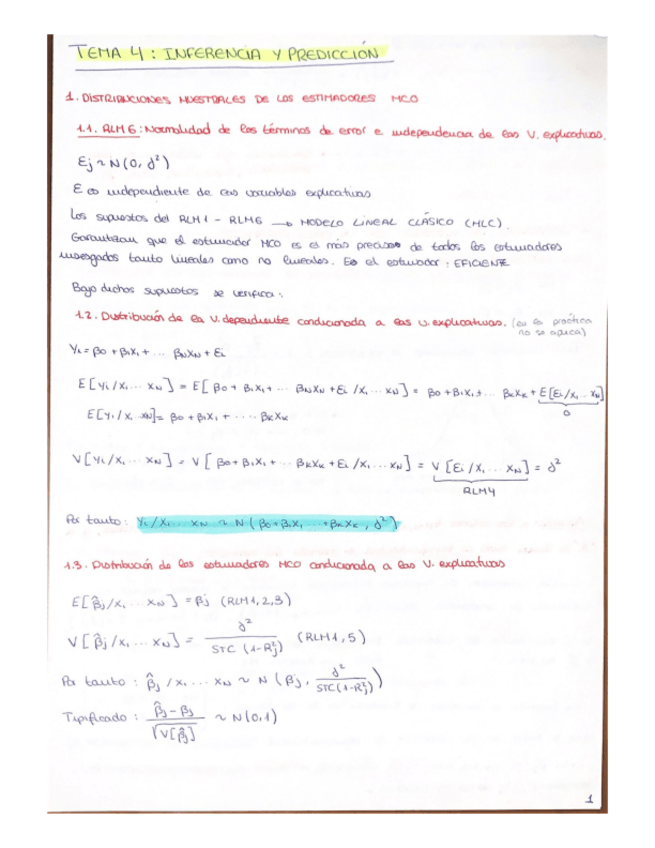 TEMA 4: INFERENCIA Y PREDICCIÓN
1. DISTRIBUCIONES MUESTRALES DE LOS ESTIMADORES MCO
1.1. RLM6: Normalidad de los términos de error e independencia de las V. explicativas.
Ej ~ N(0, σ²)
E es independiente de las variables explicativas
Los supuestos del RLM1 - RLM6 → MODELO LINEAL CLÁSICO (MLC).
Garantizan que el estimador MCO es el más preciso de todos los estimadores
insesgados tanto lineales como no lineales. Es el estimador: EFICIENTE
Bajo dichos supuestos se verifica:
1.2. Distribución de la V. dependiente condicionada a las v. explicativas. (en la práctica
no se aplica)
Yi = β0 + β1X1 + ... βNXN + Ei
E[Yi/X1 ... XN] = E[β0 + β1X1 + ... βNXN + Ei /X1 ... XN] = β0 + β1X1 + ... βKXK + E[Ei/X1 ... XN]
0
E[Yi/X1 ... XN] = β0 + β1X1 + ..... βKXK
V[Yi/X1 ... XN] = V[β0 + β1X1 + ... βKXK + Ei /X1 ... XN] = V[Ei/X1 ... XN] = σ²
RLM4
Por tanto: Yi/X1 ... XN ~ N(β0 + β1X1 ... + βKXK, σ²)
1.3. Distribución de los estimadores MCO condicionada a las V. explicativas
E[β̂j/X1 ... XN] = βj (RLM1,2,3)
V[β̂j/X1 ... XN] = σ² / STC (1-R²j) (RLM1,5)
Por tanto: β̂j /X1 ... XN ~ N(βj, σ² / STC(1-R²j))
Tipificado: β̂j - βj / √V[β̂j] ~ N(0,1)
1